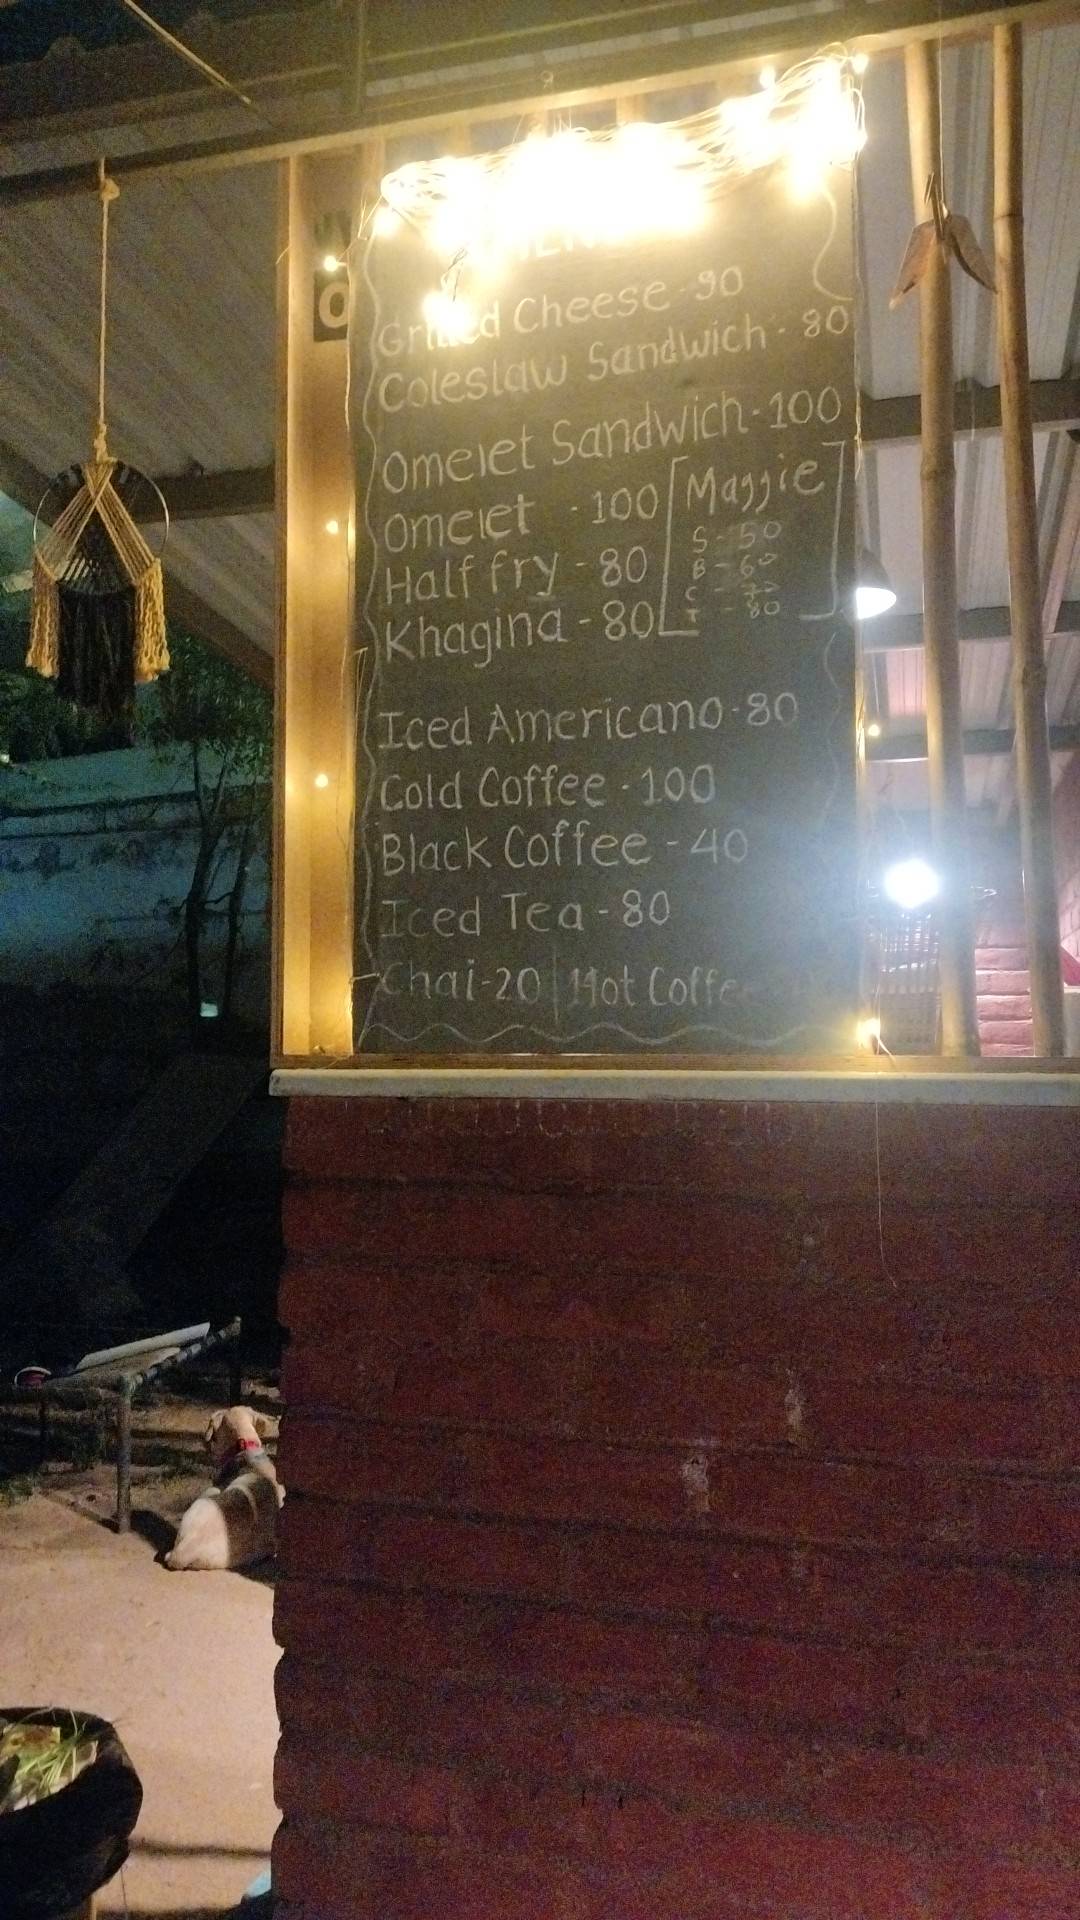 Grilled Cheese - 90
Coleslaw Sandwich - 80
Omelet Sandwich - 100
Omelet - 100
Half fry - 80
Khagina - 80
Maggie
S - 50
B - 60
C - 70
T - 80
Iced Americano - 80
Cold Coffee - 100
Black Coffee - 40
Iced Tea - 80
Chai - 20 | Hot Coffee